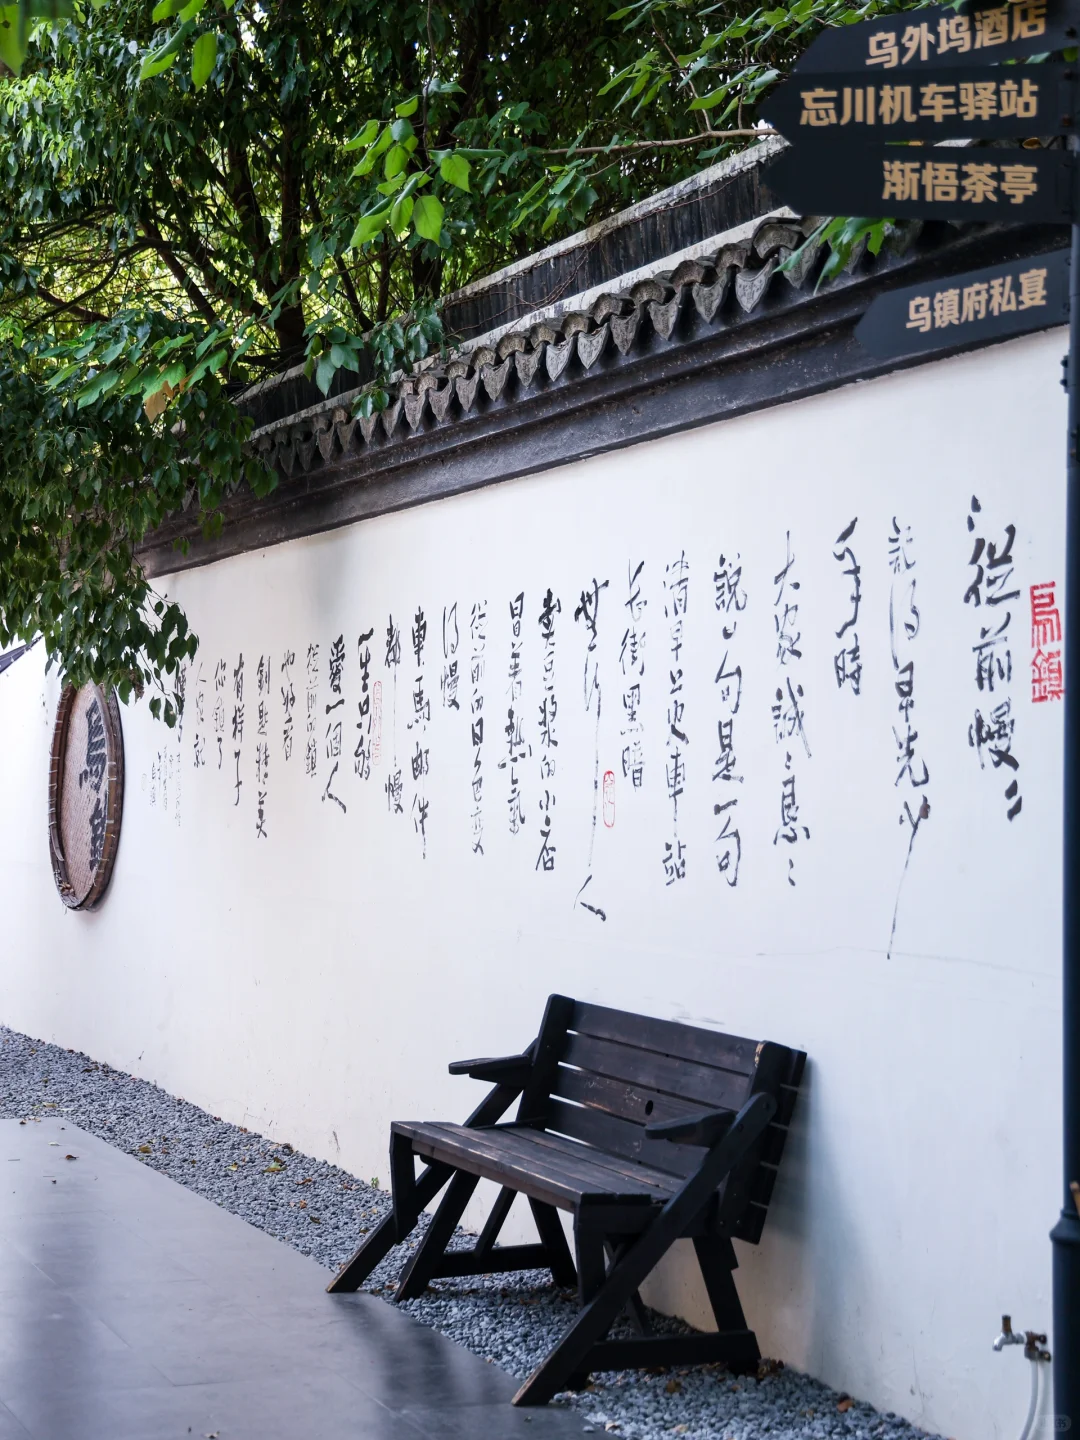 乌外坞酒店
忘川机车驿站
渐悟茶亭
乌镇府私宴
烏鎮
從前慢
記得早先少
年時
大家誠〻懇〻
說一句是一句
清早上火車站
長街黑暗
無行人
賣豆漿的小店
冒着熱氣
從前的日色變
得慢
車馬郵件
都慢
一生只夠
愛一個人
從前的鎖
也好看
鑰匙精美
有樣子
你鎖了
人家就
烏鎮